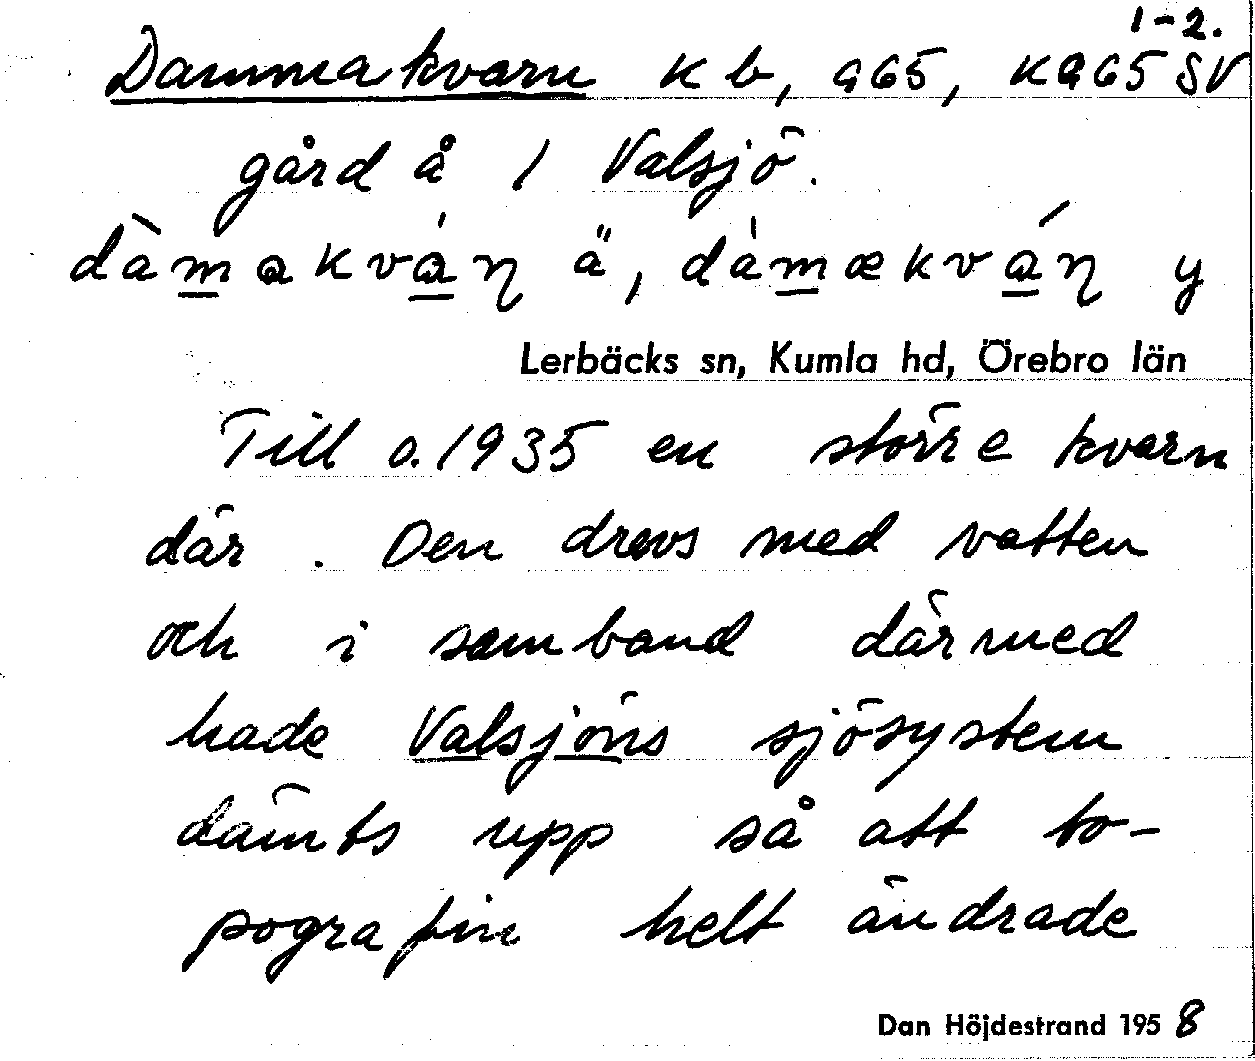 1-2.
Dammakvarn Kb, 965, K965 SV
gård å 1 Valsjö.
dàmakván ä, dàmækván y
Lerbäcks sn, Kumla hd, Örebro län
Till o. 1935 en större kvarn
där. Den drevs med vatten
och i samband därmed
hade Valsjöns sjösystem
dämts upp så att to-
pografin helt ändrade
Dan Höjdestrand 1958